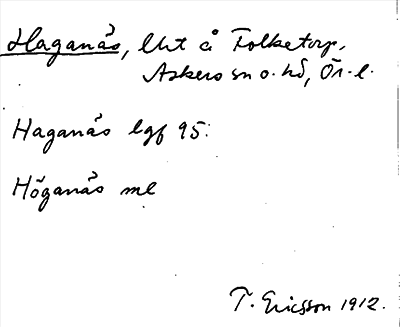 Haganäs, lht å Folketorp,
Askers sn o. hd, Ör. l.
Haganäs lgf 95:
Höganäs ml
T. Ericsson 1912.